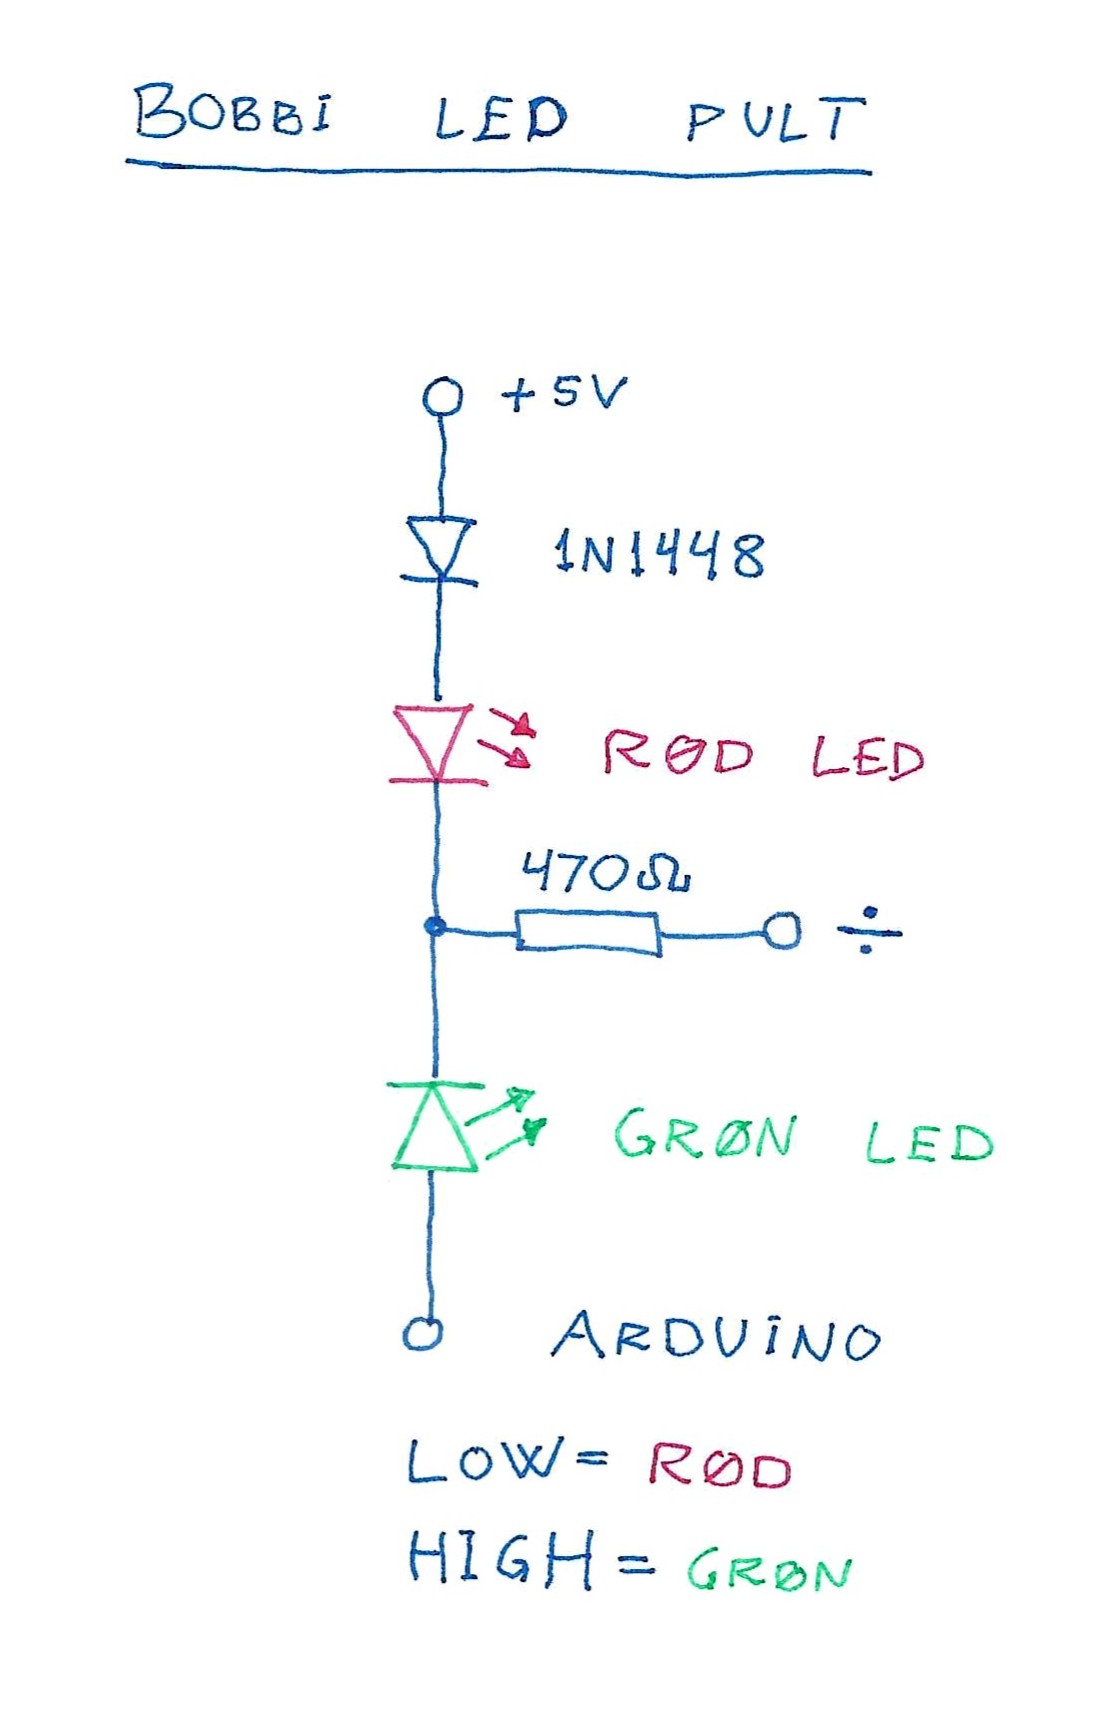 BOBBI LED PULT
+5V
1N1448
RØD LED
470Ω
÷
GRØN LED
ARDUINO
LOW = RØD
HIGH = GRØN